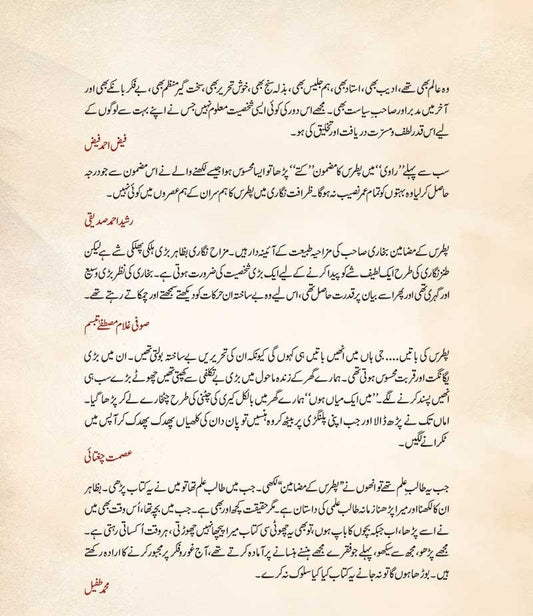 وہ عالم بھی تھے، ادیب بھی، استاد بھی، ہم جلیس بھی، بذلہ سنج بھی، خوش تحریر بھی، سخت گیر منتظم بھی، بے فکر بانکے بھی اور
آخر میں مدبر اور صاحبِ سیاست بھی۔ مجھے اس دور کی کوئی ایسی شخصیت معلوم نہیں جس نے اپنے بہت سے لوگوں کے
لیے اس قدر لطف و مسرت دریافت اور تخلیق کی ہو۔
فیض احمد فیض
سب سے پہلے ’’راوی‘‘ میں پطرس کا مضمون ’’کتے‘‘ پڑھا تو ایسا محسوس ہوا جیسے لکھنے والے نے اس مضمون سے جو درجہ
حاصل کر لیا وہ بہتوں کو تمام عمر نصیب نہ ہوگا۔ ظرافت نگاری میں پطرس کا ہم سر ان کے ہم عصروں میں کوئی نہیں۔
رشید احمد صدیقی
پطرس کے مضامین بخاری صاحب کی مزاحیہ طبیعت کے آئینہ دار ہیں۔ مزاح نگاری بظاہر بڑی ہلکی پھلکی شے ہے لیکن
طنز نگاری کی طرح ایک لطیف شے کو پیدا کرنے کے لیے ایک بڑی شخصیت کی ضرورت ہوتی ہے۔ بخاری کی نظر بڑی وسیع
اور گہری تھی اور پھر اسے بیان پر قدرت حاصل تھی، اس لیے وہ بے ساختہ ان حرکات کو دیکھتے سمجھتے اور چمکاتے رہتے تھے۔
صوفی غلام مصطفےٰ تبسم
پطرس کی باتیں.... جی ہاں میں انھیں باتیں ہی کہوں گی کیونکہ ان کی تحریریں بے ساختہ بولتی تھیں۔ ان میں بڑی
یگانگت اور قربت محسوس ہوتی تھی۔ ہمارے گھر کے زندہ ماحول میں بڑی بے تکلفی سے کھپتی تھیں چھوٹے بڑے سب ہی
انھیں پسند کرنے لگے۔ ’’میں ایک میاں ہوں‘‘ ہمارے گھر میں بالکل کیری کی چٹنی کی طرح چٹخارے لے کر پڑھا گیا۔
اماں تک نے پڑھ ڈالا اور جب اپنی پلنگڑی پر بیٹھ کر وہ ہنسیں تو پان دان کی کلھیاں پھدک پھدک کر آپس میں
ٹکرانے لگیں۔
عصمت چغتائی
جب یہ طالب علم تھے تو انھوں نے ’’پطرس کے مضامین‘‘ لکھی۔ جب میں طالب علم تھا تو میں نے یہ کتاب پڑھی۔ بظاہر
ان کا لکھنا اور میرا پڑھنا زمانہ طالب علمی کی داستان ہے۔ مگر حقیقت کچھ اور بھی ہے۔ جب میں بچہ تھا، اُس وقت بھی میں
نے اسے پڑھا، اب جبکہ بچوں کا باپ ہوں، تو بھی یہ چھوٹی سی کتاب میرا پیچھا نہیں چھوڑتی، ہر وقت اُکساتی رہتی ہے۔
مجھے پڑھو، مجھ سے سیکھو، پہلے جو فقرے مجھے ہنسنے ہنسانے پر آمادہ کرتے تھے، آج غور و فکر پر مجبور کرنے کا ارادہ رکھتے
ہیں۔ بوڑھا ہوں گا تو نہ جانے یہ کتاب کیا کیا سلوک نہ کرے۔
محمد طفیل